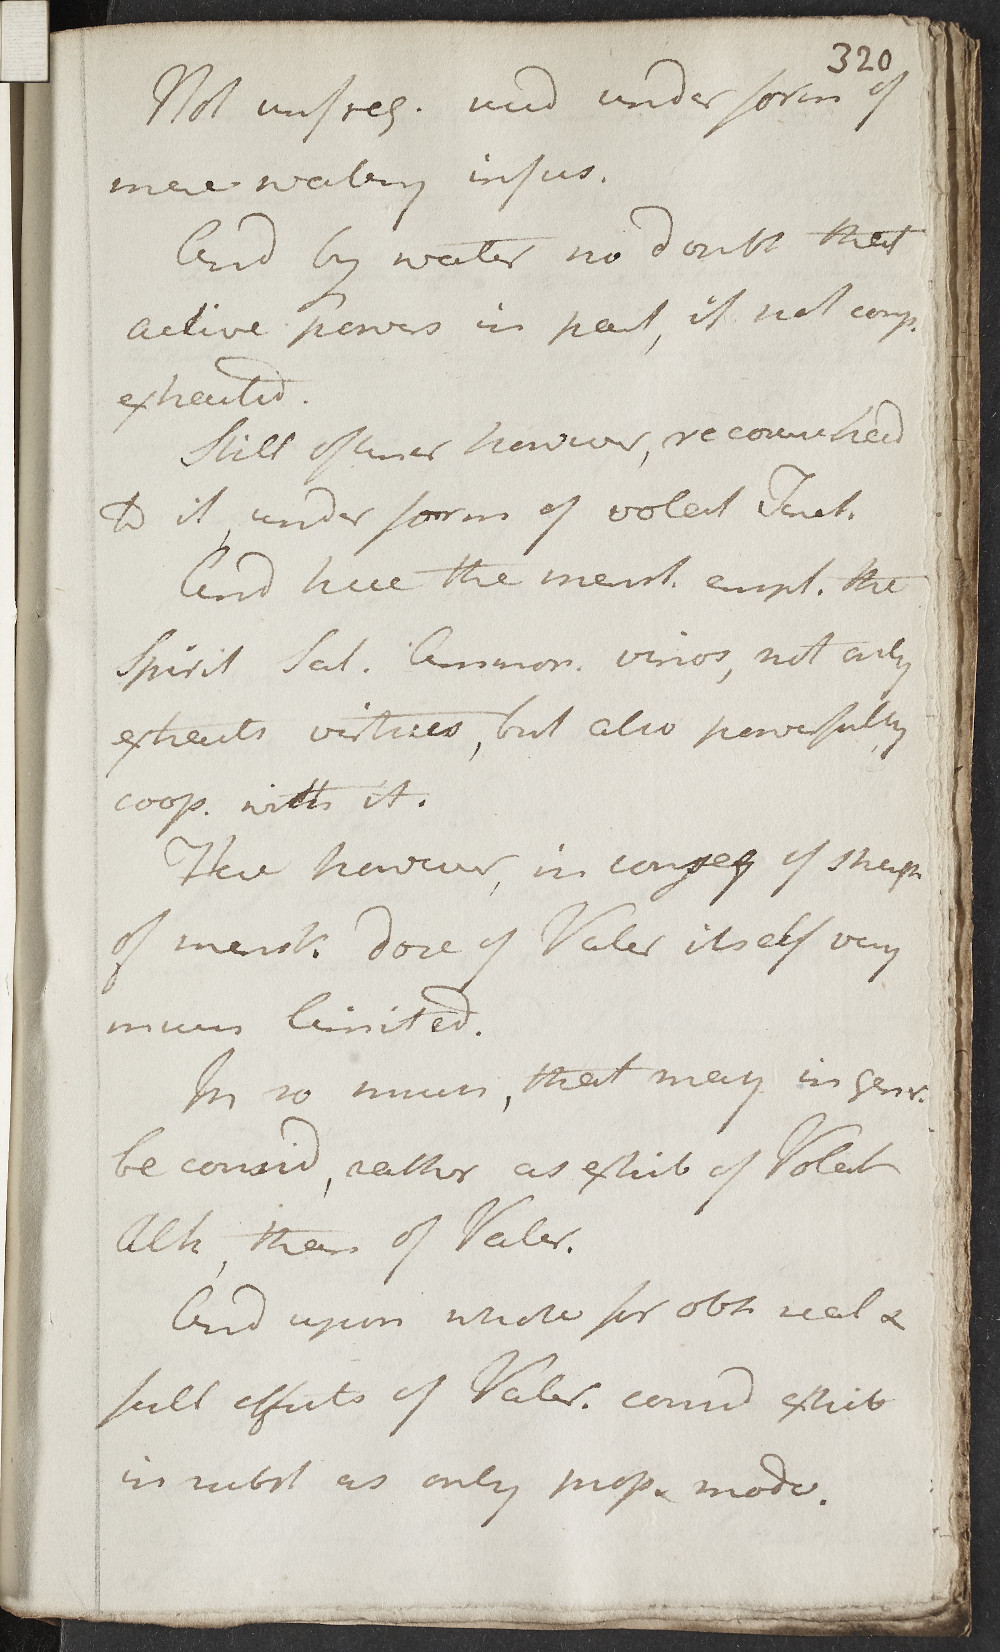 320
Not unfreq. used under form of
mere watery infus.
And by water no doubt that
active powers in part, if not comp.
extracted.
Still oftner however, recommend
to it, under form of volat Tinct.
And here the menst. empl. the
Spirit Sal. Ammon. vinos, not only
extracts virtues, but also powerfully
coop. with it.
Here however, in conseq of sharpn
of menst. dose of Valer itself very
much limited.
In so much, that may in gener.
be consid, rather as exhib of Volat
Alk, than of Valer.
And upon whole for obt real &
full effects of Valer. consid exhib
in subst as only prop. mode.